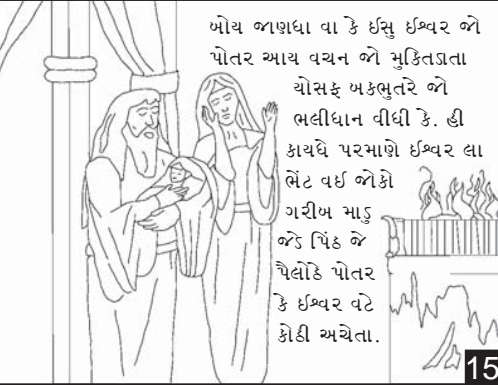 બોય જાણધા વા કે ઈસુ ઈશ્વર જો
પોતર આય વચન જો મુકિતડાતા
યોસફ બકભુતરે જો
ભલીધાન વીધી કે. હી
કાયધે પરમાણે ઈશ્વર લા
ભેંટ વઈ જોકો
ગરીબ માડુ
જડે પિંઠ જે
પૈલોઠે પોતર
કે ઈશ્વર વટે
કોઠી અચેતા.
15